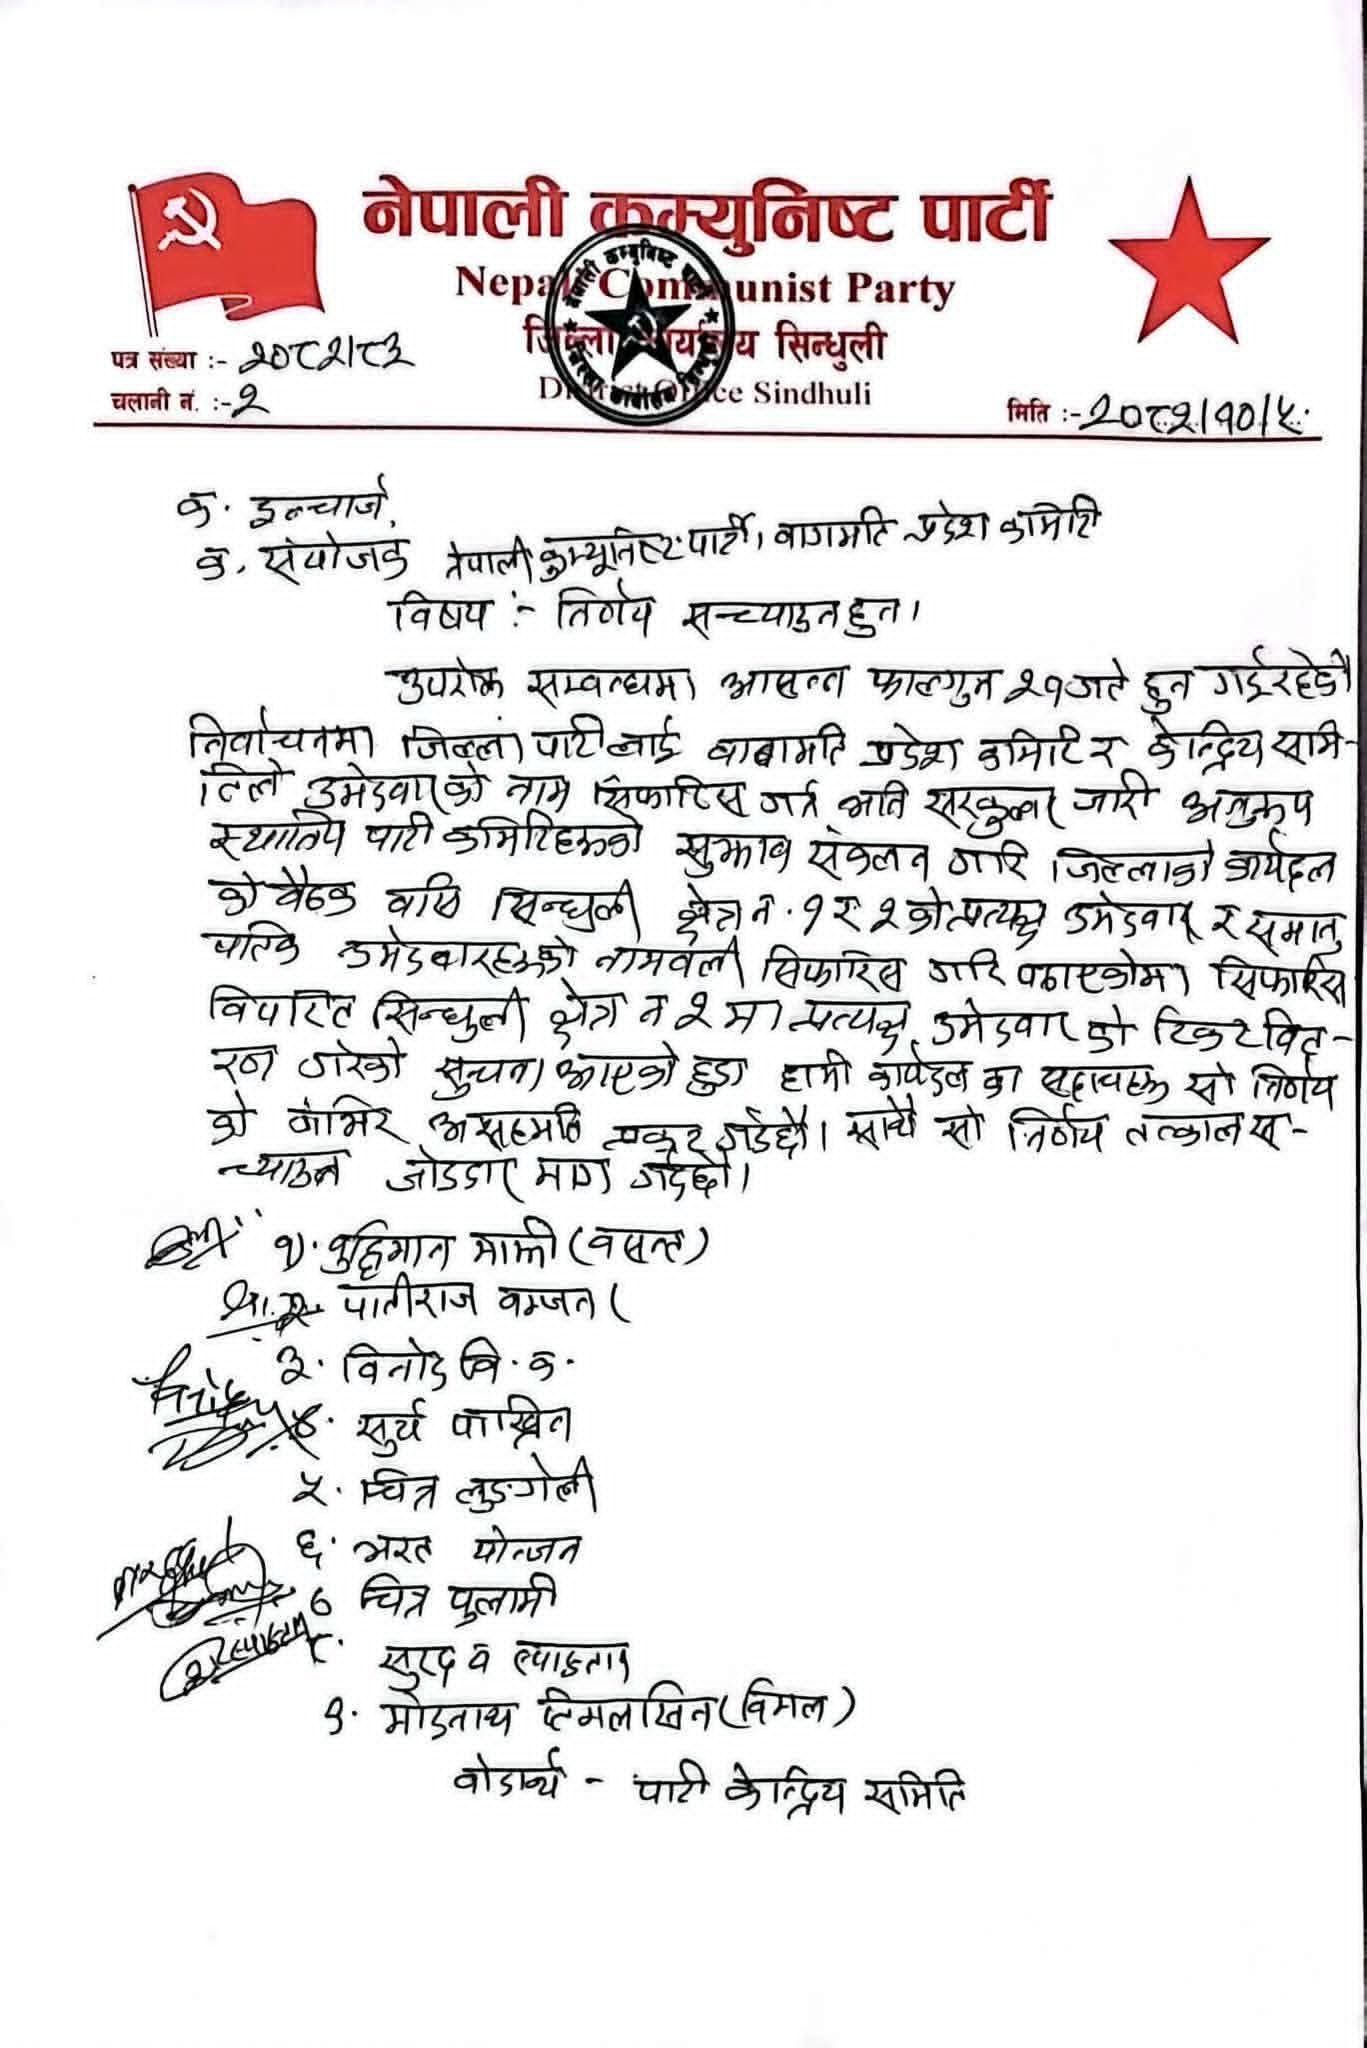 नेपाली कम्युनिष्ट पार्टी
Nepal Communist Party
जिल्ला कार्यालय सिन्धुली
District Office Sindhuli
पत्र संख्या :- २०८२/८३
चलानी नं. :- २
मिति :- २०८२/१०/५
क. इन्चार्ज,
क. संयोजक नेपाली कम्यूनिष्ट पार्टी, वागमति प्रदेश कमिटि
विषय :- निर्णय सच्याउन हुन।
उपरोक्त सम्वन्धमा आसन्न फाल्गुन २१ गते हुन गईरहेको
निर्वाचनमा जिल्ला पार्टीलाई वागमति प्रदेश कमिटि र केन्द्रिय समि-
तिले उमेदवारको नाम सिफारिस गर्न भनि सरकुलर जारी अनुरूप
स्थानिय पार्टी कमिटिहरूको सुझाव संकलन गरि जिल्लाको कार्यदल
को वैठक वसि सिन्धुली क्षेत्र न. १ र २ को प्रत्यक्ष उमेदवार र समानु
पातिक उमेदवारहरूको नामवली सिफारिस गरि पठाएकोमा सिफारिस
विपरित सिन्धुली क्षेत्र न २ मा प्रत्यक्ष उमेदवार को टिकट वित-
रण गरेको सुचना आएको हुदा हामी कार्यदल का सदस्यहरू सो निर्णय
को गंभिर असहमति प्रकट गर्दछौ। साथै सो निर्णय तत्काल स-
च्याउन जोडदार माग गर्दछौ।
१). वुद्दिमान माझी (वसन्त)
२. पातीराज वम्जन
३. विनोद वि. क.
४. सुर्य पाख्रिन
५. चित्र लुङगेली
६. भरत योन्जन
७ चित्र पुलामी
८. सुरदेव ल्याङतान
९. मोडनाथ तिमलसिन (विमल)
वोधार्थ - पार्टी केन्द्रिय समिति